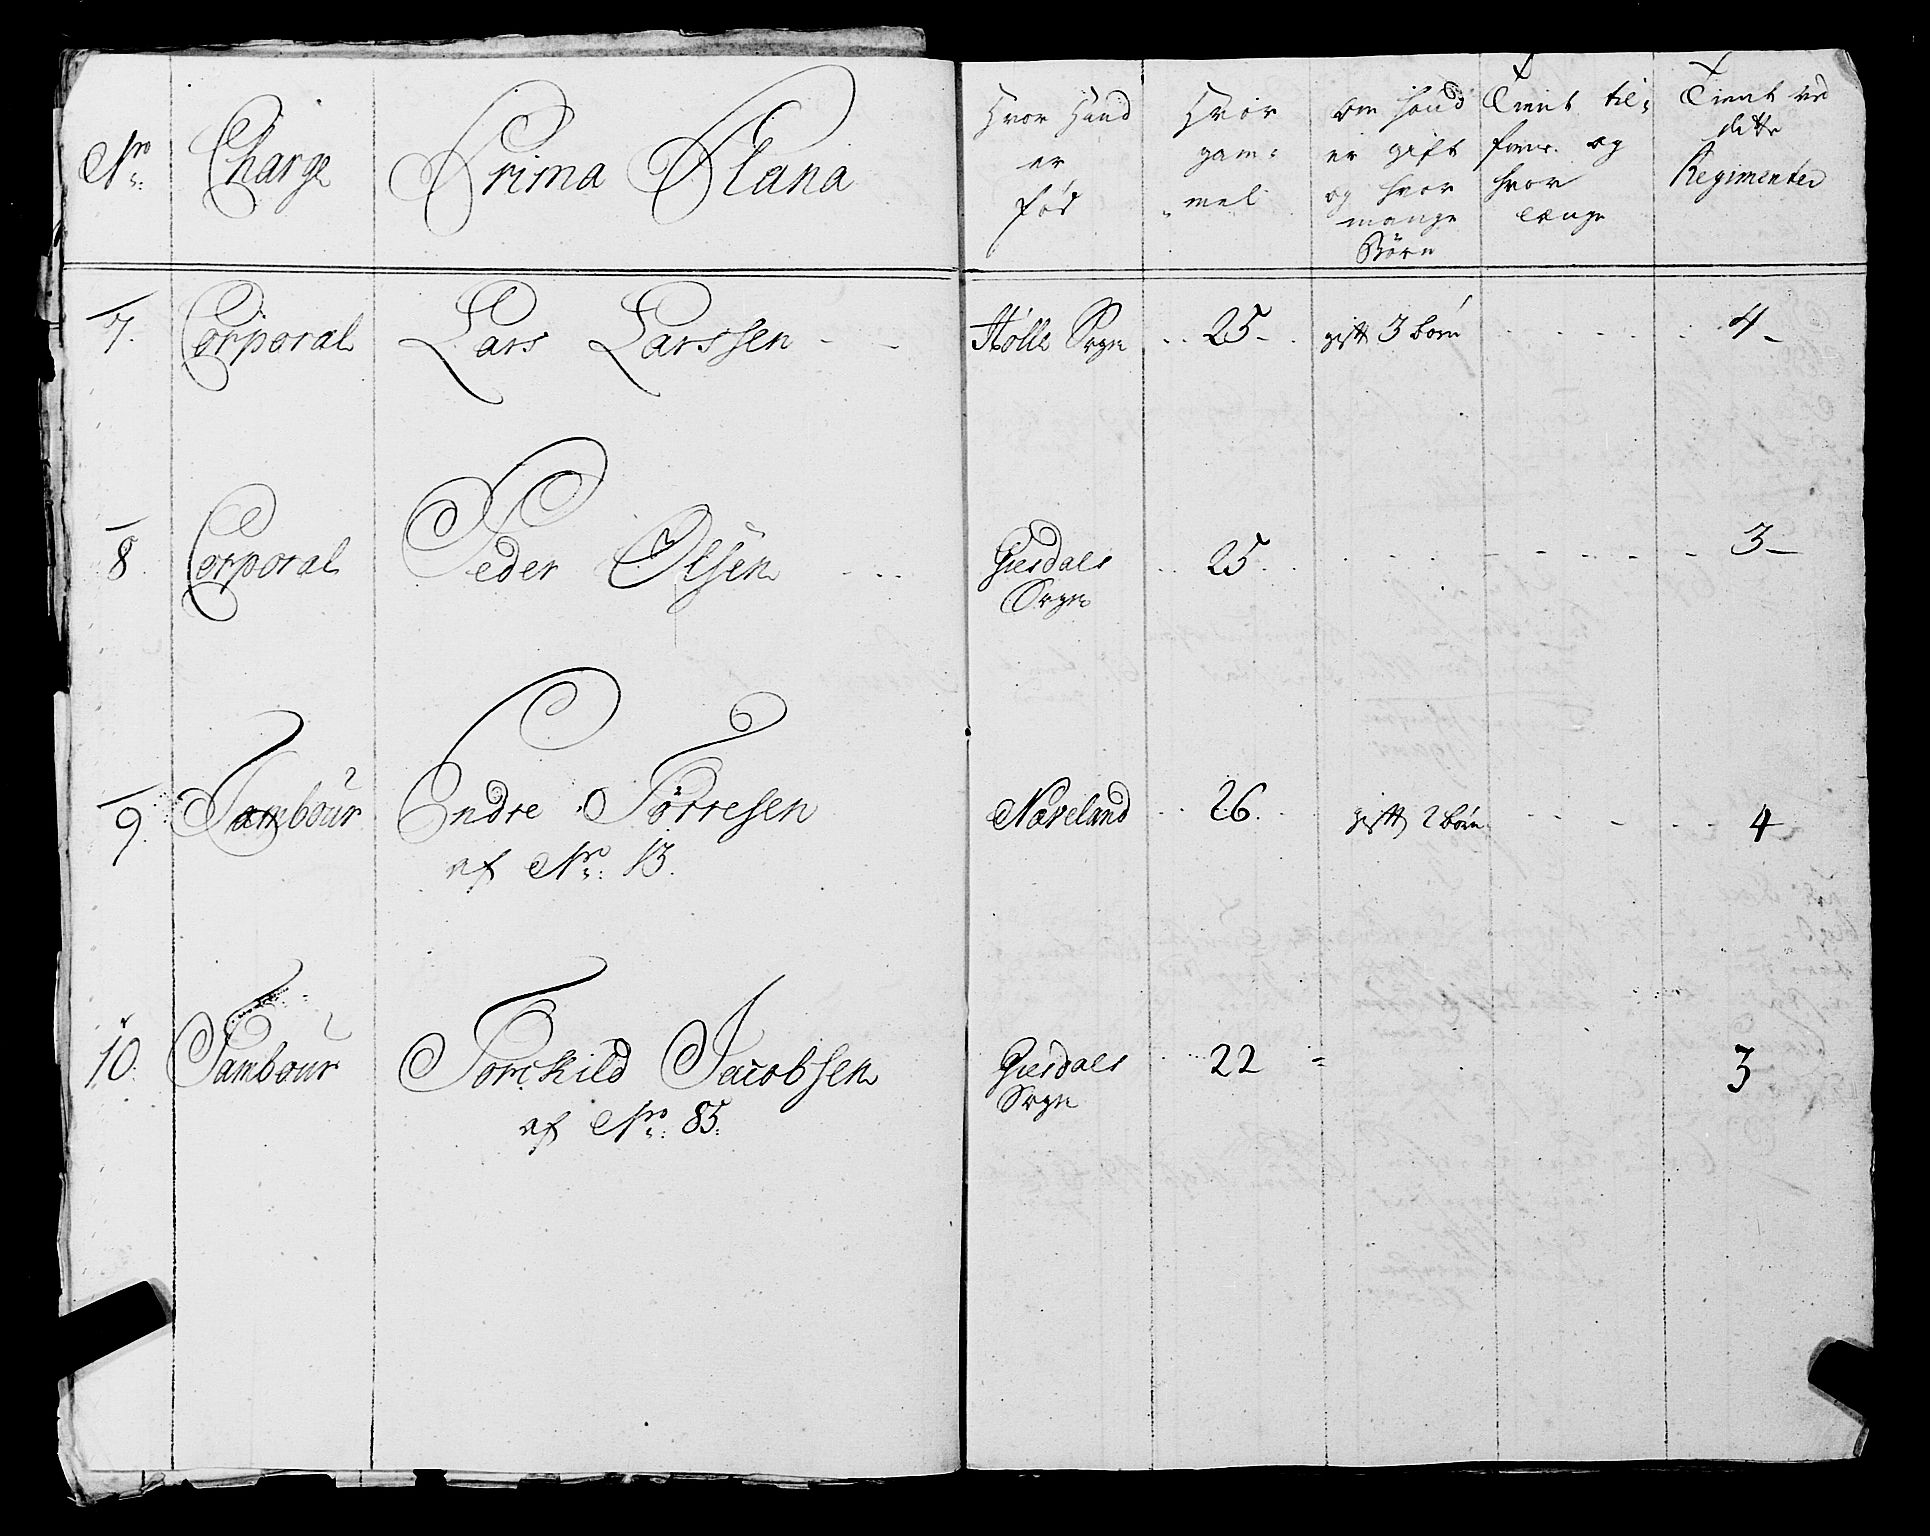 Nro Charge Prima Plana Hvor Hand er Fød Hvor gam: mel om hand er gift og hvor mange Børn Tient til: forn. og hvor længe Tient ved dette Regimentet
7. Corporal Lars Larssen - - Hölle Sogn 25 gift 3 børn 4
8. Corporal Peder Olsen Giesdals 25 3
Sogn
9. Tambour Endre Törresen Næveland 26. gift 2 børn 4
af Nro: 13.
10. Tambour Torckild Jacobsen Giesdals 22 3
af Nro: 85. Sogn